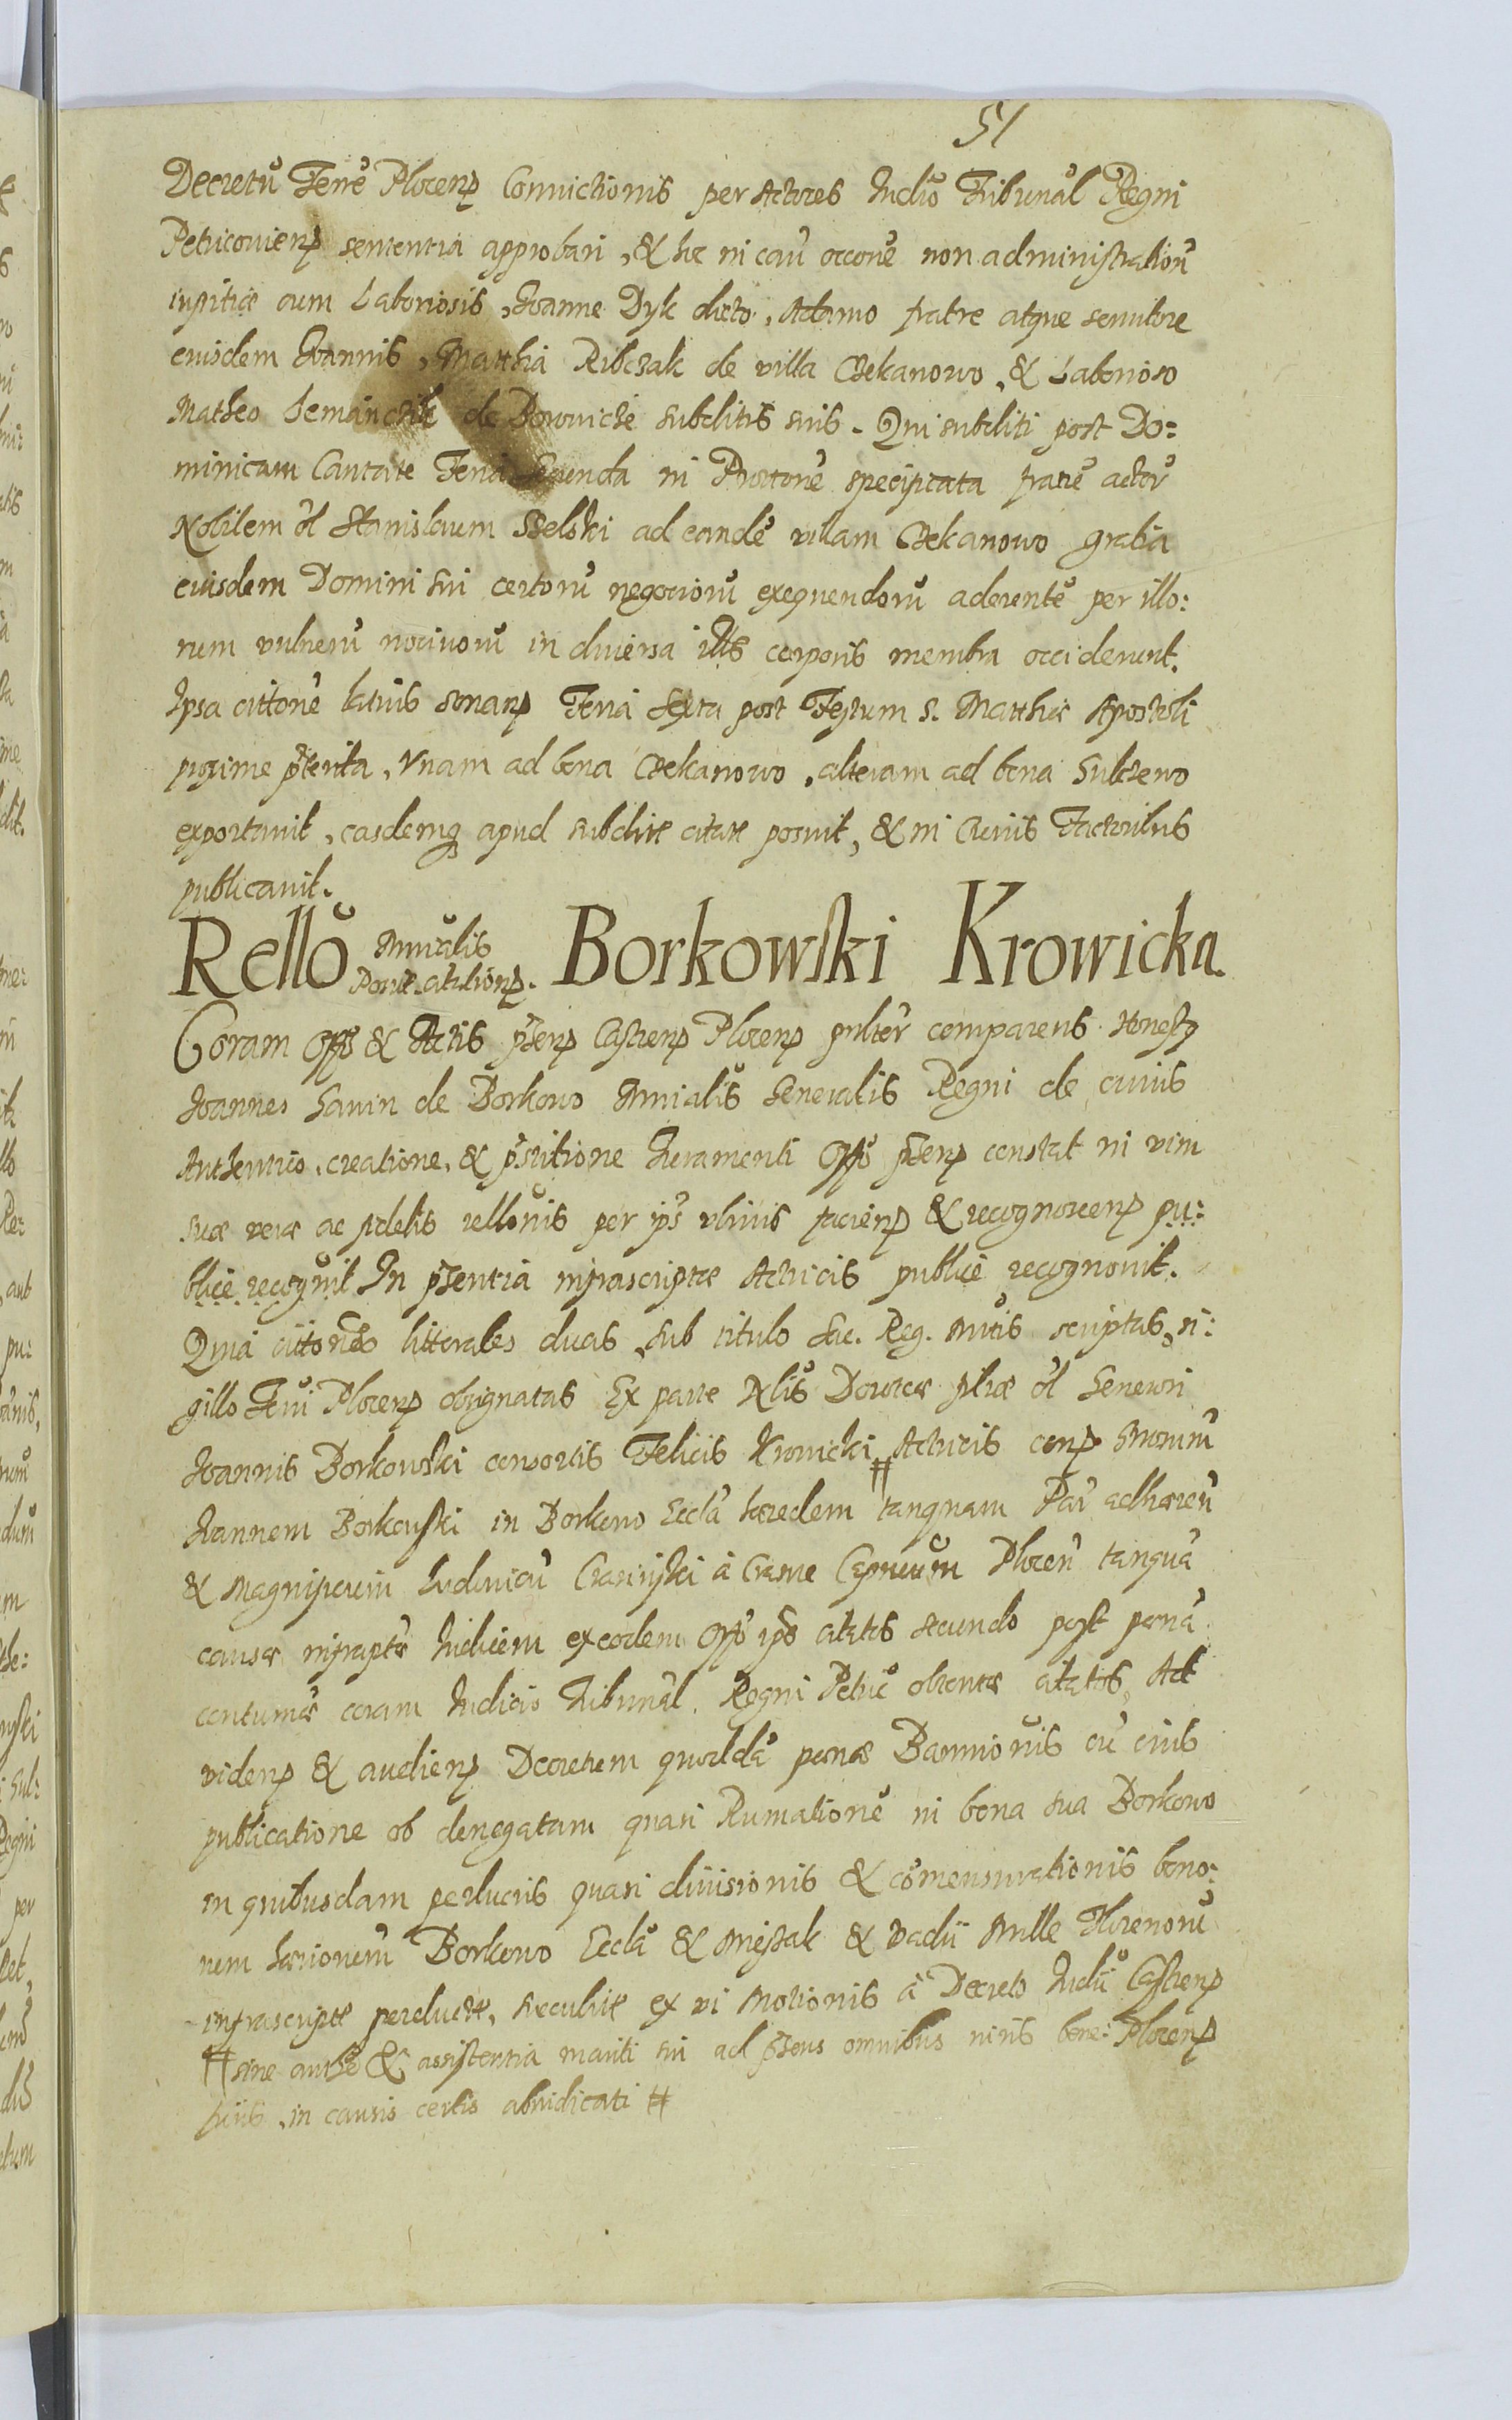 51
Decretū Terrē Plocens Convictionis per Actores Iudiō Tribunal Regni
Petricoviens sententia approbari, & hc in cau occone non administration
iustitiæ cum Laboriosis, Ioanne Dyk dicto, Adamo fratre atque servitore
eiusdem Ioannis, Matthia Ribczak de villa Czekanowo, & Laborioso
Matheo Semanczik de Borowicze subditis suis. Qui subditi post Do:
minicam Cantate Feria Secunda in Prottone specificata fratrē actor
Nobilem ol Stanislaum Bielski ad eandē villam Czekanowo gratia
eiusdem Domini sui certorū negotiorū exequendorū aderentē per illo:
rum vulnerū nocivorū in diversa illis corporis membra occiderunt.
Ipsa cittone latius sonans Feria Sexta post Festum S. Matthiæ Apostoli
proxime pterita, Vnam ad bona Czekanowo, alteram ad bona Sulczewo
exportavit, easdemq apud subditæ citatæ posuit, & in Curiis Factoribus
publicavit.
Rellō Mnialis
Posit citations. Borkowski Krowicka.
Coram Offō & Actis psens Castrens Plocens psnlter comparens Honest
Ioannes Savin de Borkowo Mnialis Generalis Regni de cuius
Authentico, creatione, & pstitione Iuramenti Offō psens constat in vim
suæ veræ ac fidelis rellonis per ips vltivis faciens & recognoscens pu:
blice recognit In psentia infrascriptæ Actricis publice recognovit.
Quia cittones litterales duas, sub titulo Sac. Reg. Mttis scriptas, si:
gillo Trrii Plocens obsignatas Ex parte Nlis Doroteæ filiæ ol Generosi
Ioannis Borkowski consortis Felicis Krowicki # Actricis cons Gnosum
Ioannem Borkowski in Borkowo Eccla hæredem tanquam Par adhæren
& Magnificum Ludovicū Crasinski à Crasne Capneum Plocen tanquā
causæ infraptæ Iudicem ex eodem Offō ipso citatos secundo post pœnā
contumæ coram Iudicio Tribunal. Regni Petric obtentæ citatos, Ad
videns & audiens Decretum quoddā pœnæ Bannionis cū eius
publicatione ob denegatam quasi Rumationē in bona sua Borkowo
in quibusdam perlucris quasi divisionis & cōmensurationis bono:
rum hæriorum Borkowo Eccla & Miestak & vadii Mille Florenorū
infrascriptæ perductæ, secutæ ex vi Motionis à Decreto Iudii Castrens
# sine authe & assistentia mariti sui ad psens omnibus iuris bene: Plocens
ficiis, in causis certis abiudicati #